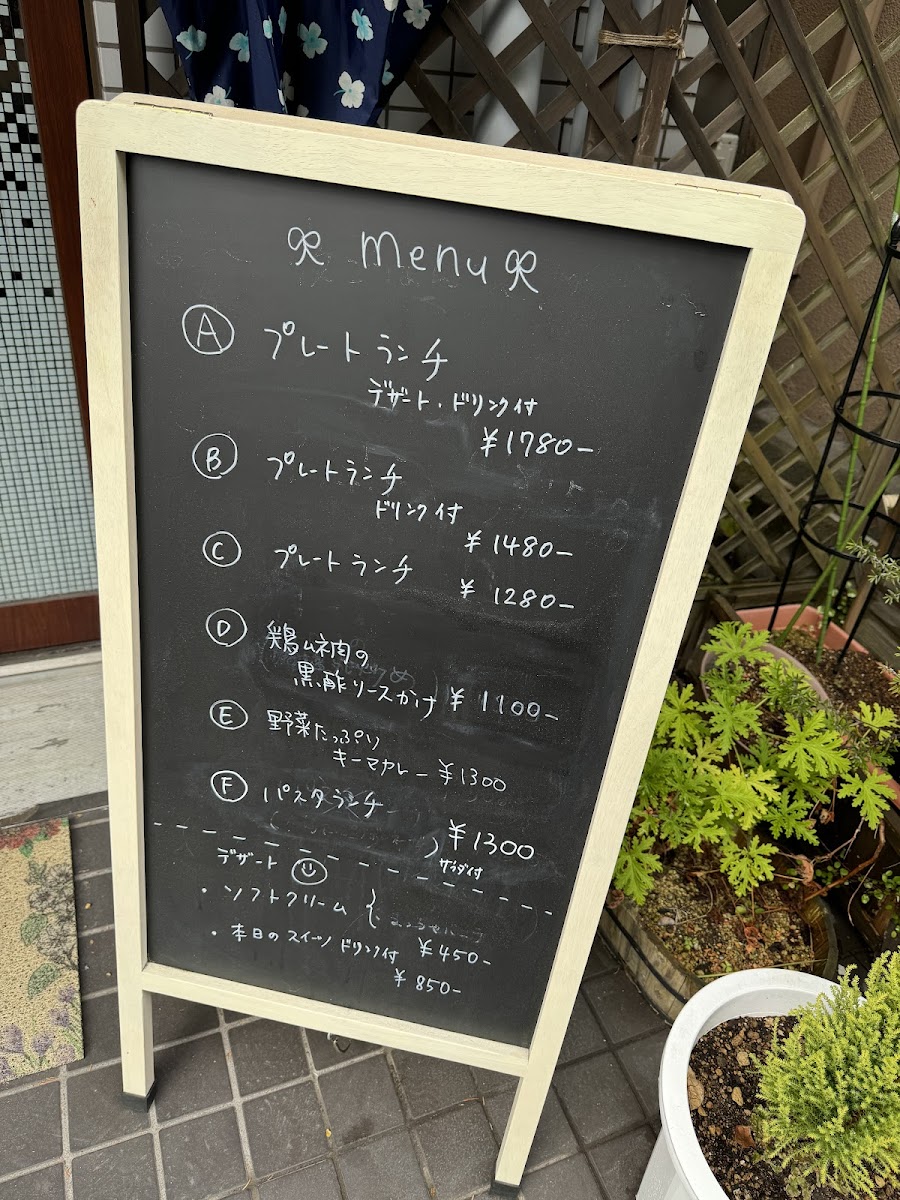 menu
Ⓐ プレートランチ
デザート・ドリンク付
¥1780-
Ⓑ プレートランチ
ドリンク付
¥1480-
Ⓒ プレートランチ ¥1280-
Ⓓ 鶏ムネ肉の
黒酢ソースかけ ¥1100-
Ⓔ 野菜たっぷり
キーマカレー ¥1300
Ⓕ パスタランチ
¥1300
サラダ付
デザート
・ソフトクリーム
¥450-
・本日のスイーツ ドリンク付
¥850-